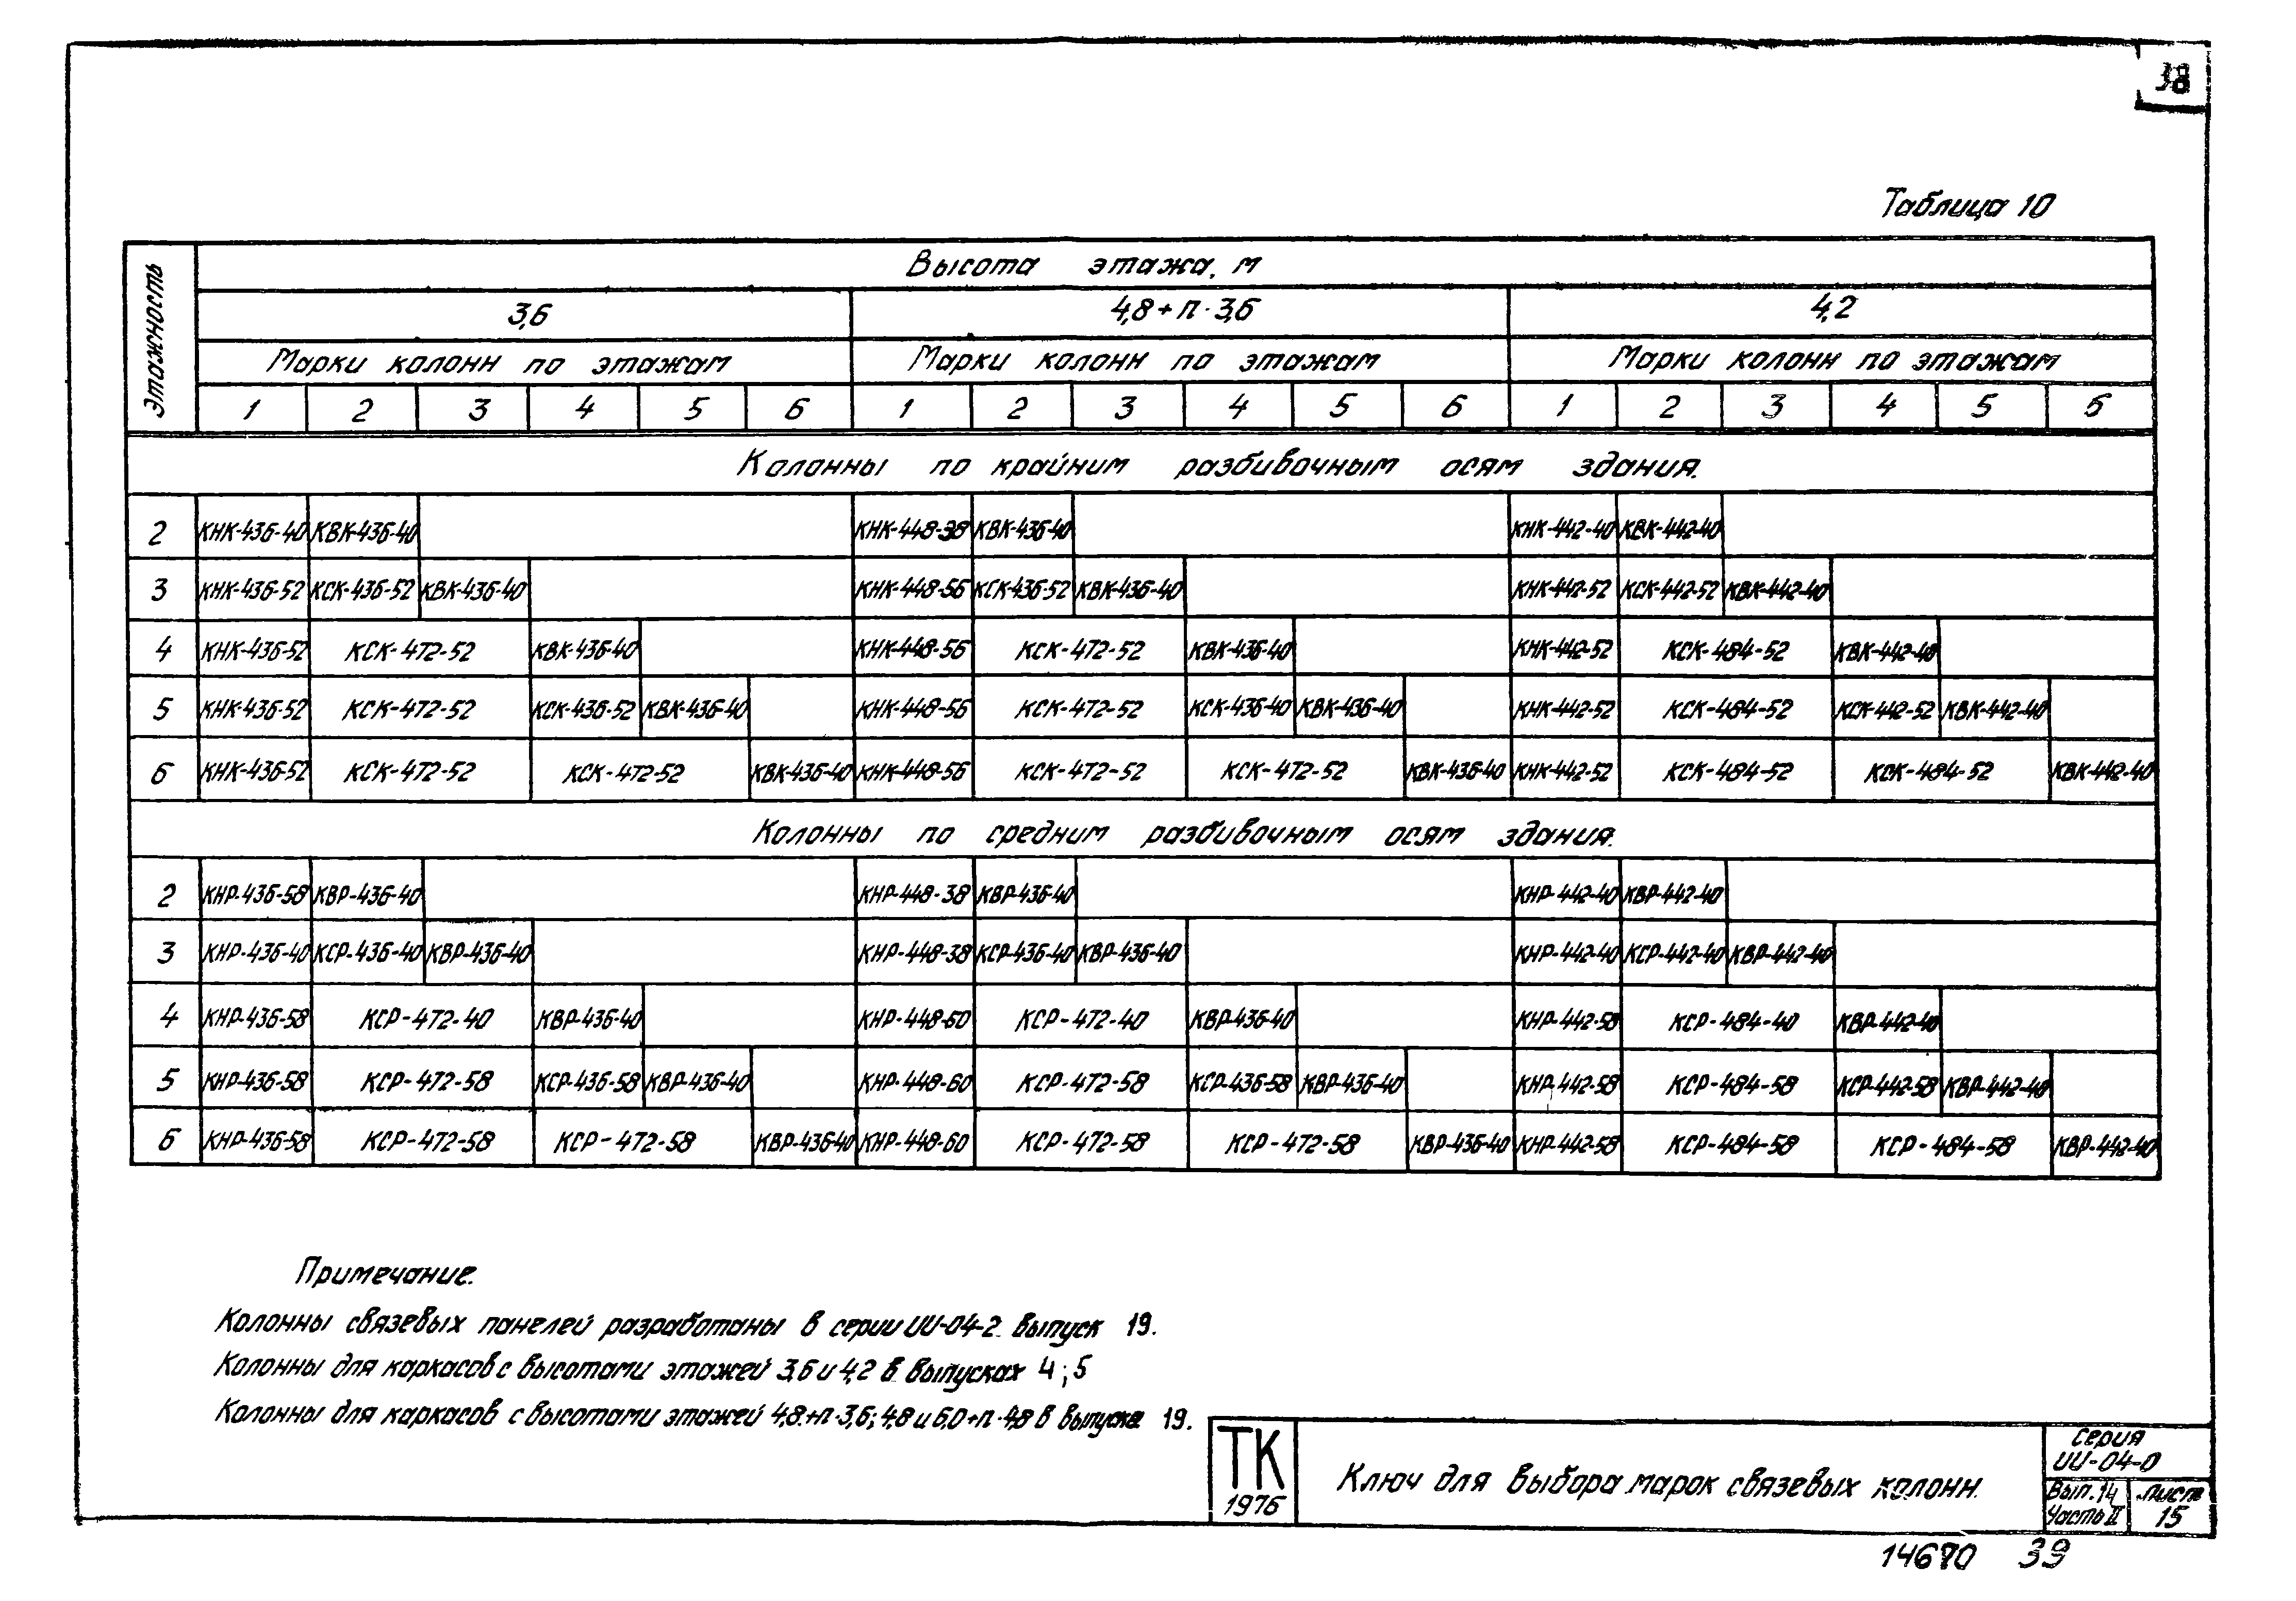 38
Таблица 10
Этажность
Высота этажа, м
3,6 4,8+п·3,6 4,2
Марки колонн по этажам Марки колонн по этажам Марки колонн по этажам
1 2 3 4 5 6 1 2 3 4 5 6 1 2 3 4 5 6
Колонны по крайним разбивочным осям здания.
2 КНК-436-40 КВК-436-40 КНК-448-38 КВК-436-40 КНК-442-40 КВК-442-40
3 КНК-436-52 КСК-436-52 КВК-436-40 КНК-448-56 КСК-436-52 КВК-436-40 КНК-442-52 КСК-442-52 КВК-442-40
4 КНК-436-52 КСК-472-52 КВК-436-40 КНК-448-56 КСК-472-52 КВК-436-40 КНК-442-52 КСК-484-52 КВК-442-40
5 КНК-436-52 КСК-472-52 КСК-436-52 КВК-436-40 КНК-448-56 КСК-472-52 КСК-436-40 КВК-436-40 КНК-442-52 КСК-484-52 КСК-442-52 КВК-442-40
6 КНК-436-52 КСК-472-52 КСК-472-52 КВК-436-40 КНК-448-56 КСК-472-52 КСК-472-52 КВК-436-40 КНК-442-52 КСК-484-52 КСК-484-52 КВК-442-40
Колонны по средним разбивочным осям здания.
2 КНР-436-58 КВР-436-40 КНР-448-38 КВР-436-40 КНР-442-40 КВР-442-40
3 КНР-436-40 КСР-436-40 КВР-436-40 КНР-448-38 КСР-436-40 КВР-436-40 КНР-442-40 КСР-442-40 КВР-442-40
4 КНР-436-58 КСР-472-40 КВР-436-40 КНР-448-60 КСР-472-40 КВР-436-40 КНР-442-58 КСР-484-40 КВР-442-40
5 КНР-436-58 КСР-472-58 КСР-436-58 КВР-436-40 КНР-448-60 КСР-472-58 КСР-436-58 КВР-436-40 КНР-442-58 КСР-484-58 КСР-442-58 КВР-442-40
6 КНР-436-58 КСР-472-58 КСР-472-58 КВР-436-40 КНР-448-60 КСР-472-58 КСР-472-58 КВР-436-40 КНР-442-58 КСР-484-58 КСР-484-58 КВР-442-40
Примечание.
Колонны связевых панелей разработаны в серии ИИ-04-2 выпуск 19.
Колонны для каркасов с высотами этажей 3,6 и 4,2 в выпусках 4; 5
Колонны для каркасов с высотами этажей 4,8+п·3,6; 4,8 и 6,0+п·4,8 в выпуске 19.
ТК
1976
Ключ для выбора марок связевых колонн.
серия
ИИ-04-0
Вып.14
Часть II
лист
15
14670 39